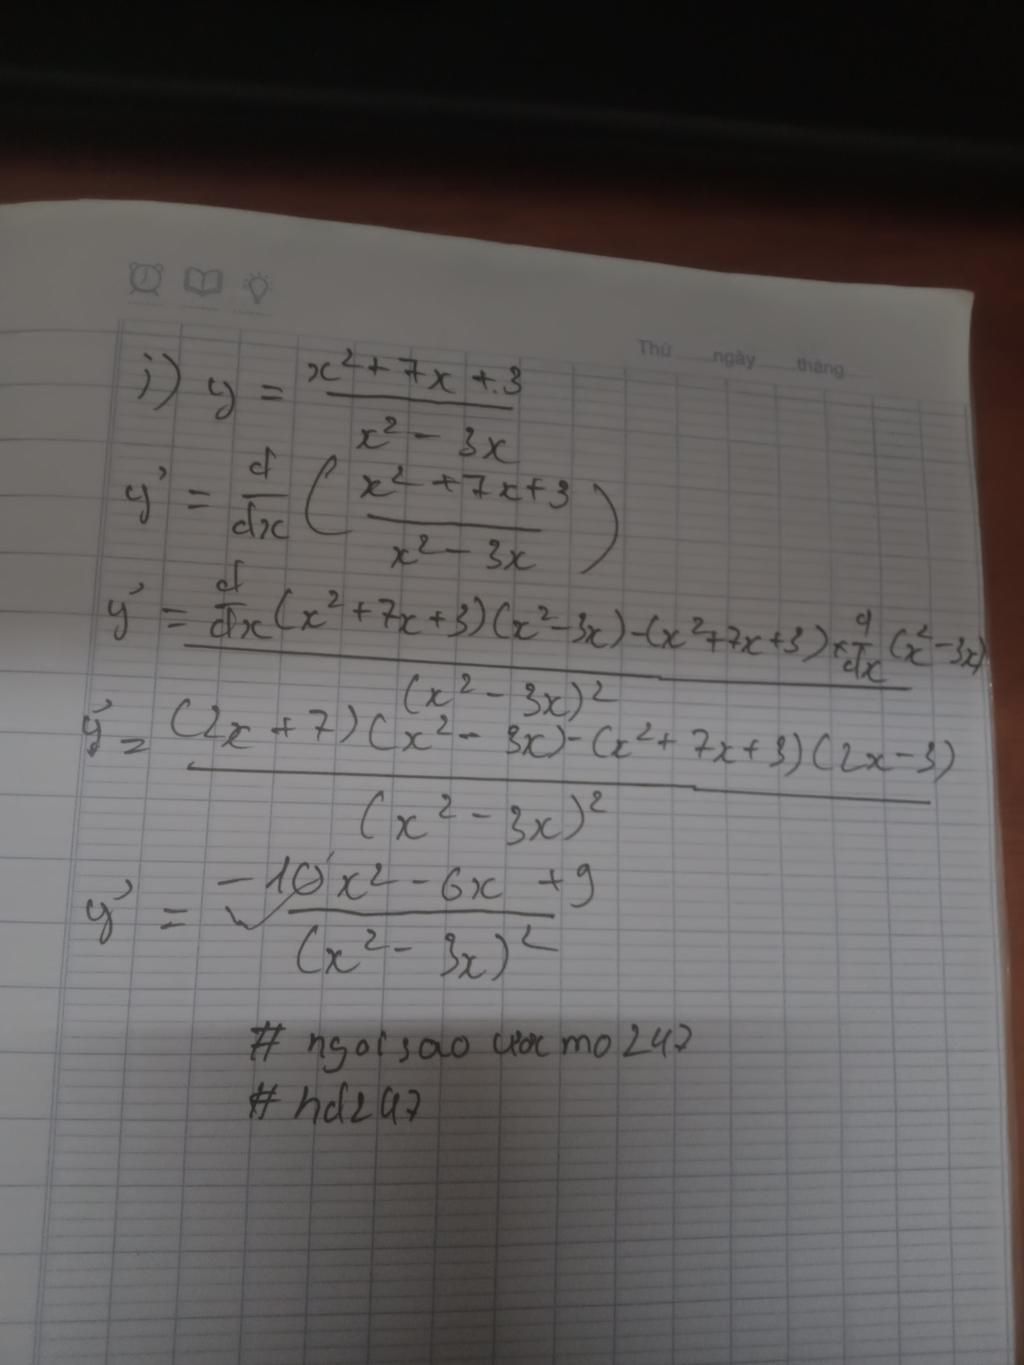 Thứ ngày tháng
j) y = (x² + 7x + 3) / (x² - 3x)
y' = d/dx ( (x² + 7x + 3) / (x² - 3x) )
y' = ( d/dx (x² + 7x + 3) (x² - 3x) - (x² + 7x + 3) × d/dx (x² - 3x) ) / (x² - 3x)²
y' = ( (2x + 7) (x² - 3x) - (x² + 7x + 3) (2x - 3) ) / (x² - 3x)²
y' = (-10x² - 6x + 9) / (x² - 3x)²
# ngoisao uocmo 247
# hd247